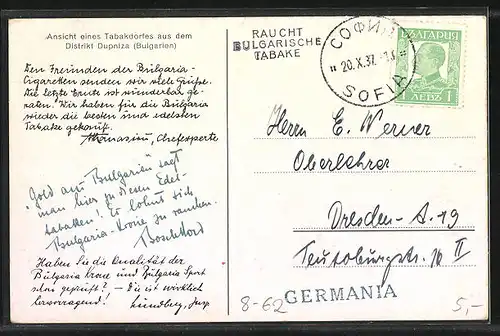 Ansicht eines Tabakdorfes aus dem
Distrikt Dupniza (Bulgarien)
Den Freunden der Bulgaria-
Cigaretten senden wir viele Grüße.
Die letzte Ernte ist wunderbar ge-
raten. Wir haben für die Bulgaria
wieder die besten und edelsten
Tabake gekauft.
Chefexperte
"Gold aus Bulgarien" sagt
man hier zu diesen Edel-
tabaken! Es lohnt sich
Bulgaria-Krone zu rauchen.
Haben Sie die Qualität der
Bulgaria Krone und Bulgaria Sport
schon geprüft? – Die ist wirklich
hervorragend!
RAUCHT
BULGARISCHE
TABAKE
СОФИЯ
20.X.37
SOFIA
БЪЛГАРИЯ
ЛЕВЪ 1
Herrn E. Werner
Oberlehrer
Dresden-A. 19
Teutoburgstr. 16 II
8-62
GERMANIA
5,-